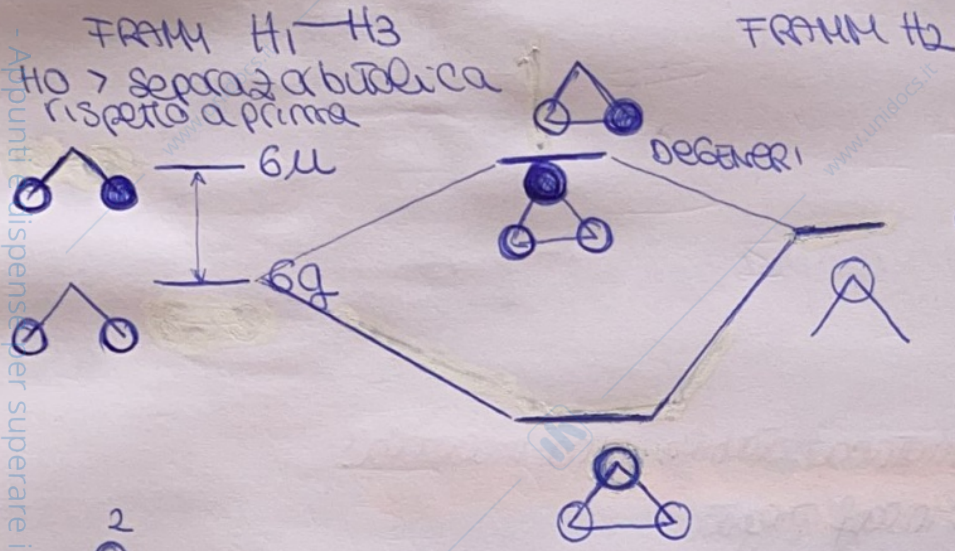 FRAMM H1-H3
FRAMM H2
HO > separaz orbitalica
rispetto a prima
6u
DEGENERI
6g
2
- Appunti e dispense per superare i
www.unidocs.it